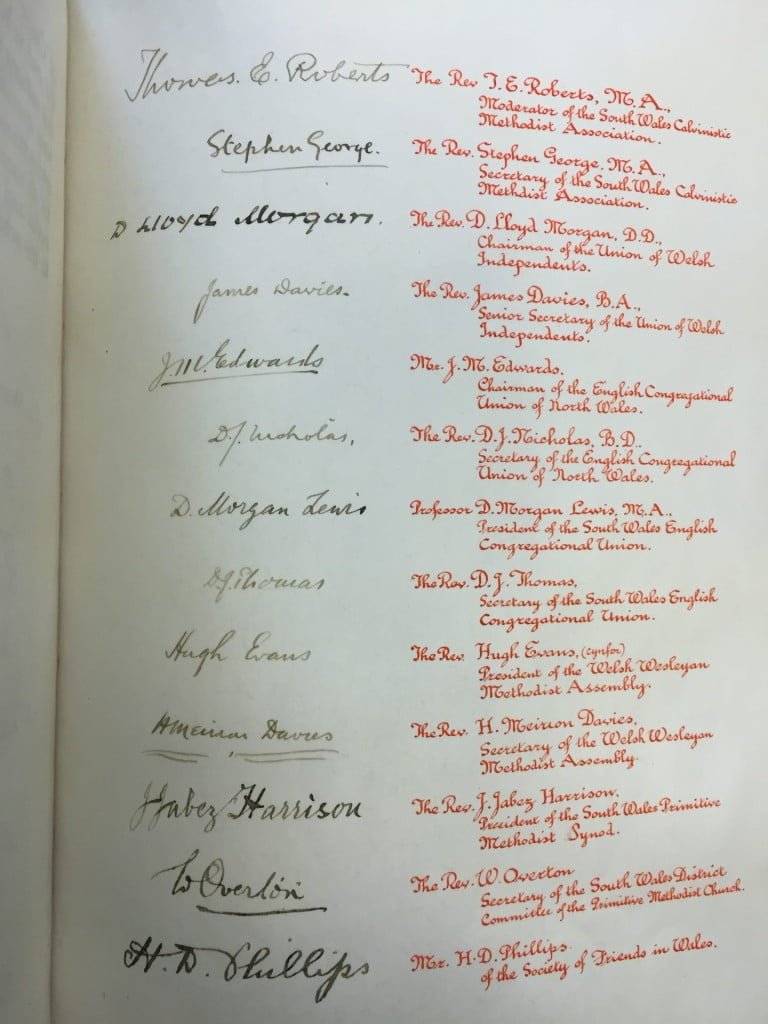 Thomas. E. Roberts
The Rev T. E. Roberts, M. A.,
Moderator of the South Wales Calvinistic
Methodist Association.
Stephen George.
The Rev. Stephen George, M. A.,
Secretary of the South Wales Calvinistic
Methdist Association.
D Lloyd Morgan.
The Rev. D. Lloyd Morgan, D.D.,
Chairman of the Union of Welsh
Independents.
James Davies.
The Rev. James Davies, B.A.,
Senior Secretary of the Union of Welsh
Independents.
J. M. Edwards
Mr. J. M. Edwards,
Chairman of the English Congregational
Union of North Wales.
D. J. Nicholas,
The Rev. D. J. Nicholas, B. D.,
Secretary of the English Congregational
Union of North Wales.
D. Morgan Lewis
Professor D. Morgan Lewis, M. A.,
President of the South Wales English
Congregational Union.
D. J. Thomas
The Rev. D. J. Thomas,
Secretary of the South Wales English
Congregational Union.
Hugh Evans
The Rev. Hugh Evans, (cynfor)
President of the Welsh Wesleyan
Methodist Assembly.
H Meirion Davies
The Rev. H. Meirion Davies,
Secretary of the Welsh Wesleyan
Methodist Assembly.
J Jabez Harrison
The Rev. J. Jabez Harrison,
President of the South Wales Primitive
Methodist Synod.
W Overton
The Rev. W. Overton
Secretary of the South Wales District
Committee of the Primitive Methodist Church.
H. D. Phillips
Mr. H. D. Phillips.
of the Society of Friends in Wales.